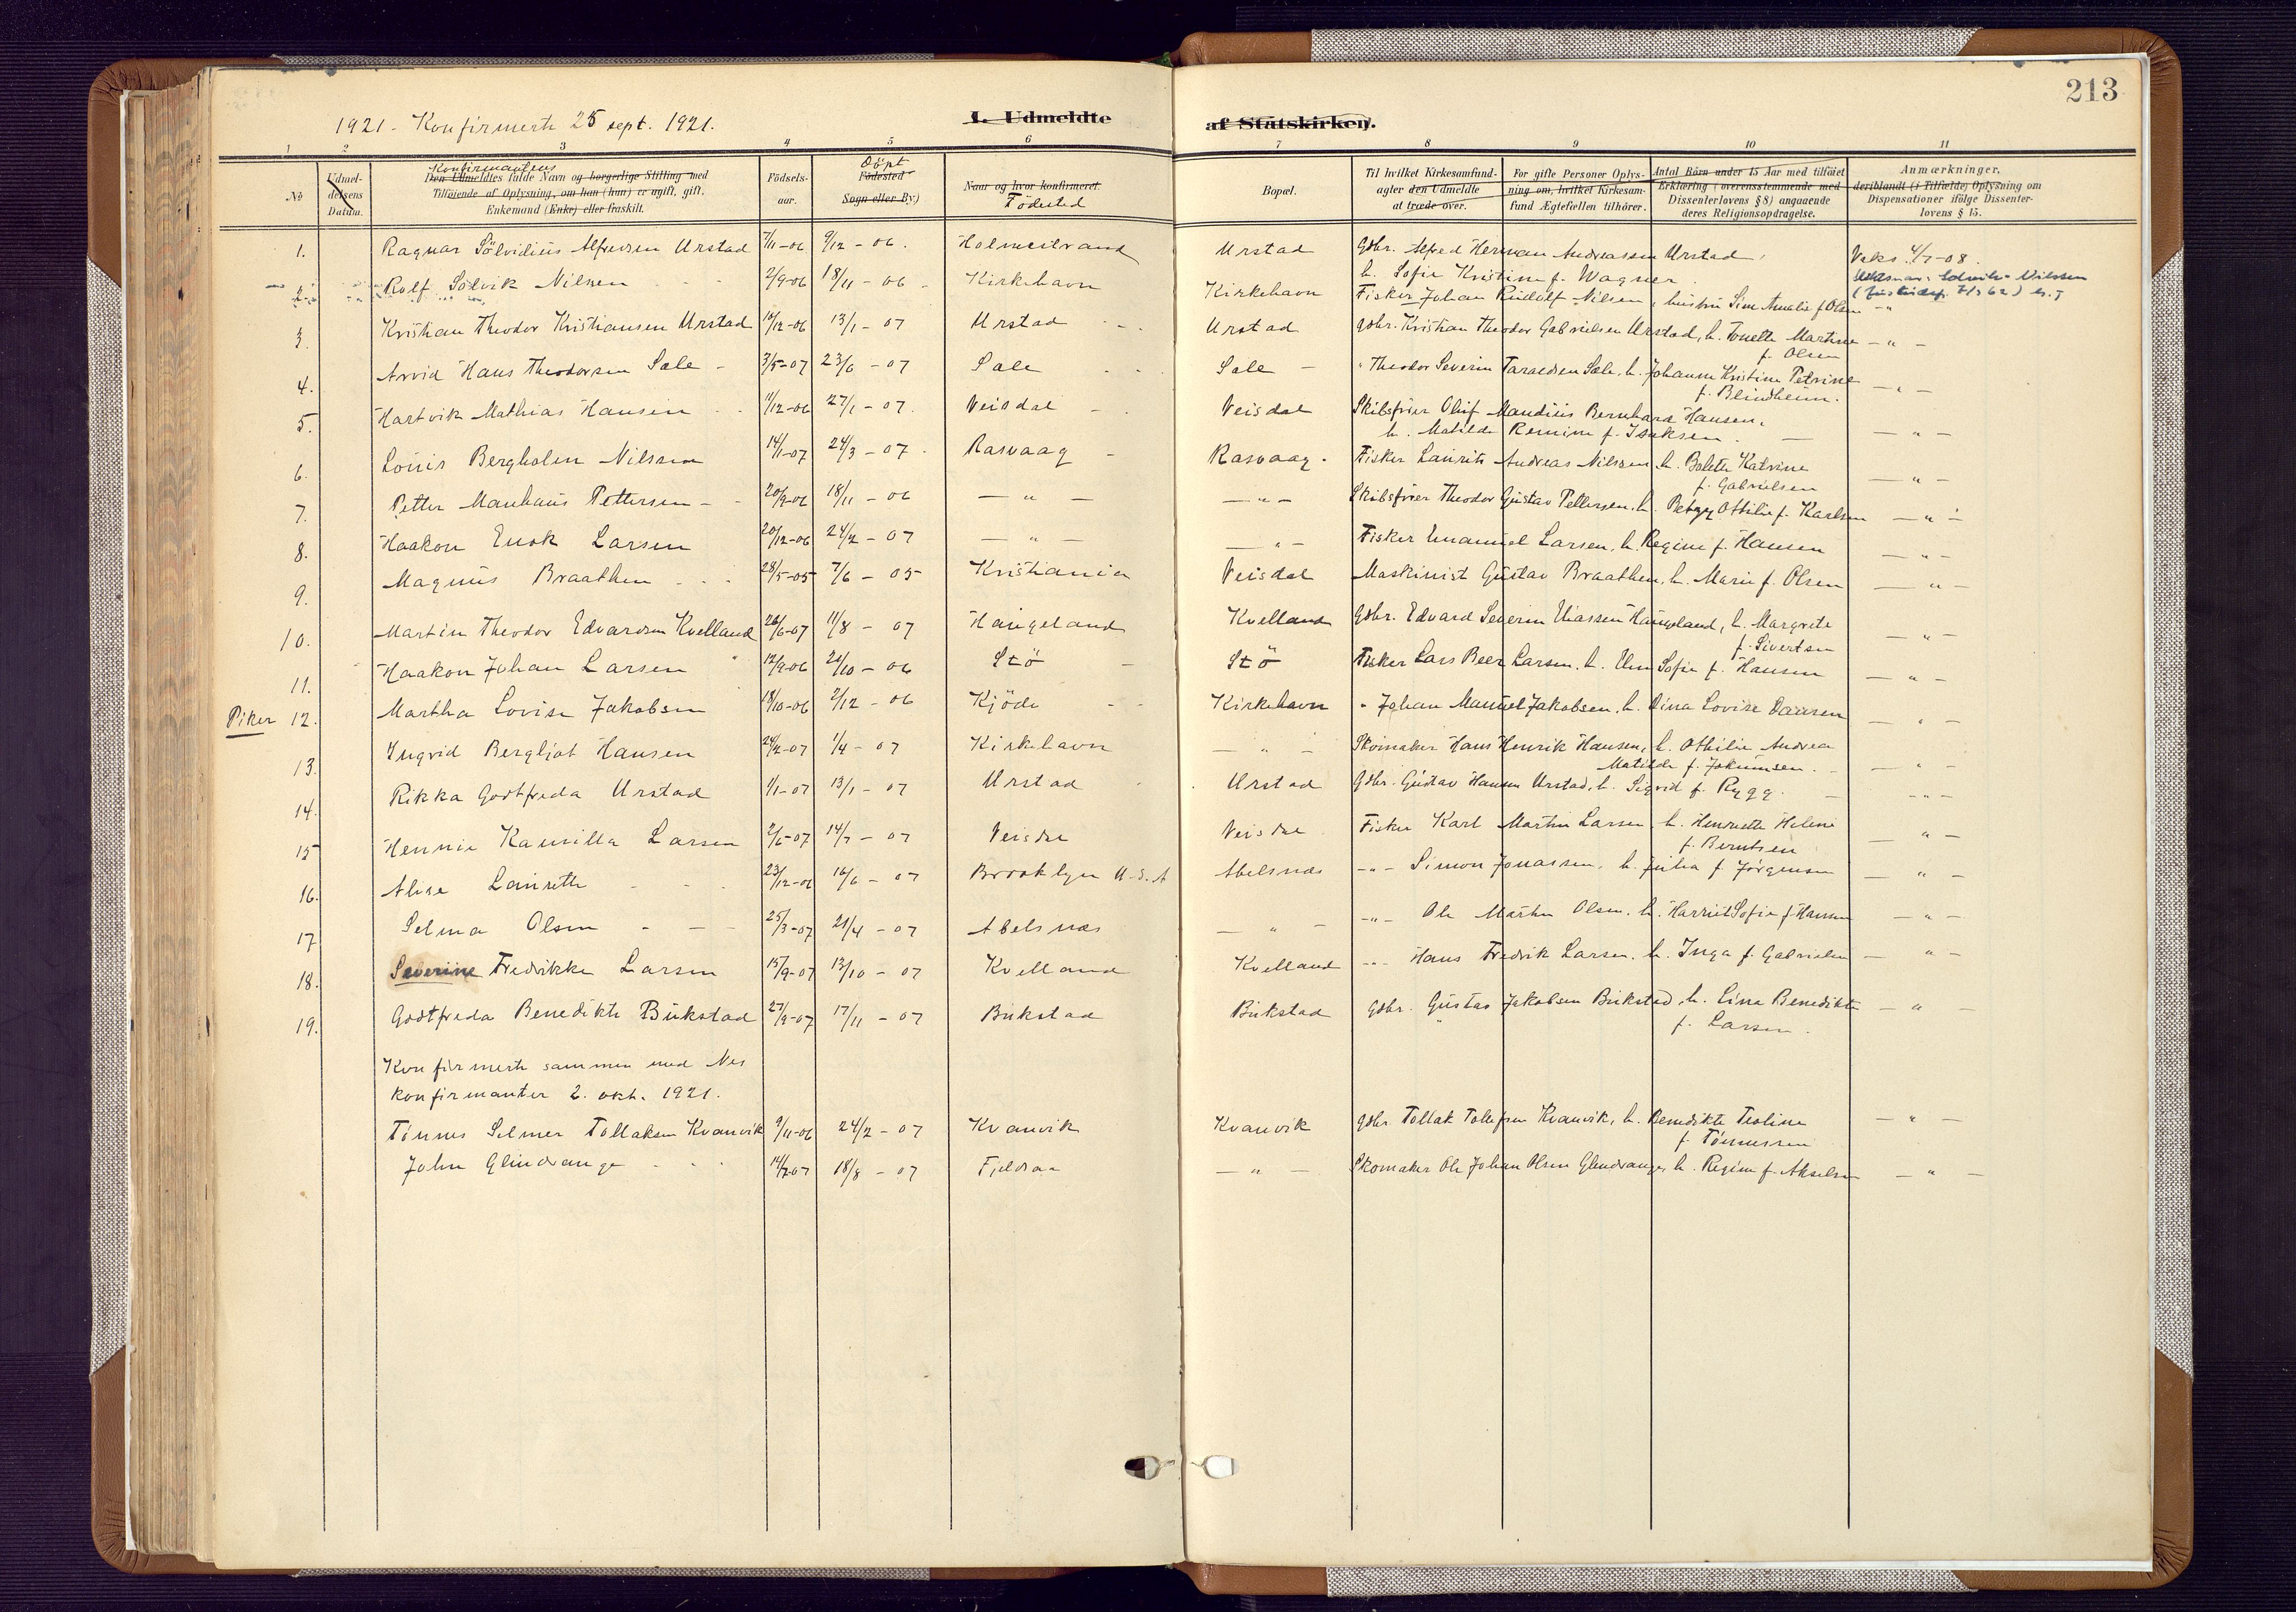 213
1921. Konfirmerte 25 sept. 1921.
I. Udmeldte af Statskirken.
1 2 3 4 5 6 7 8 9 10 11
No
Udmeldelsens Datum.
Konfirmantens
Den Udmeldtes fulde Navn og borgerlige Stilling med
Tilføiende af Oplysning, om han (hun) er ugift, gift,
Enkemand (Enke) eller fraskilt.
Fødselsaar.
Döpt
Fødested
Sogn eller By)
Naar og hvor konfirmeret.
Födested
Bopæl.
Til hvilket Kirkesamfund
agter den Udmeldte
at træde over.
For gifte Personer Oplys-
ning om, hvilket Kirkesam-
fund Ægtefællen tilhører.
Antal Børn under 15 Aar med tilføiet
Erklæring (overensstemmende med
Dissenterlovens § 8) angaaende
deres Religionsopdragelse.
Anmærkninger,
deriblandt (i Tilfælde) Oplysning om
Dispensationer ifølge Dissenter-
lovens § 15.
1. Ragnar Sölvidius Alfredsen Urstad 7/11-06 9/12-06. Holmestrand Urstad Gdbr. Alfred Herman Andreassen Urstad, Vaks. 4/7-08.
h. Sofie Kristine f. Wagner.
2. Rolf Sölvik Nilsen 2/9-06 18/11-06 Kirkehavn Kirkehavn Fisker Johan Rudolf Nilsen, hustru Sine Amalie f Olsen -"-
3. Kristian Theodor Kristiansen Urstad 10/12-06 13/1-07 Urstad Urstad gdbr. Kristian Theodor Gabrielsen Urstad, h. Tonette Martine -"-
f. Olsen
4. Arvid Hans Theodorsen Sale 3/5-07 23/6-07 Sale Sale " Theodor Severin Taraldsen Sale, h. Johanne Kristine Petrine -"-
f. Blindheim.
5. Hartvik Mathias Hansen 11/12-06 27/1-07. Veisdal Veisdal Skibsfører Oluf Mandius Bernhard Hansen,
h. Matilde Remine f. Isaksen. -"-
6. Louis Bergholm Nilssen 14/1-07 24/3-07. Rasvaag Rasvaag. Fisker Laurits Andreas Nilssen, h. Bolette Katrine
f. Gabrielsen -"-
7. Petter Manhaus Pettersen 20/9-06 18/11-06 -"- -"- Skibsfører Theodor Gustav Pettersen, h. Betzy Ottilie f. Karlsen -"-
8. Haakon Enok Larsen 20/12-06 24/2-07 -"- -"- Fisker Emanuel Larsen, h. Regine f. Hansen -"-
9. Magnus Braathen 28/5-05 7/6-05 Kristiania Veisdal Maskinist Gustav Braathen, h. Marie f. Olsen -"-
10. Martin Theodor Edvardsen Kvelland 26/6-07 11/8-07 Haugeland Kvelland Gdbr. Edvard Severin Eliassen Haugeland, h. Margrete -"-
f. Sivertsen
11. Haakon Johan Larsen 12/9-06 21/10-06 Stö Stö Fisker Lars Beer Larsen, h. Elen Sofie f. Hansen -"-
Piker 12. Martha Lovise Jakobsen 18/10-06 2/12-06 Kjöde Kirkehavn " Johan Manuel Jakobsen, h. Dina Lovise Daasen -"-
13. Ingrid Bergljot Hansen 24/2-07 1/4-07 Kirkehavn -"- Skomaker Hans Henrik Hansen, h. Othilie Andrea
Matilde f. Jokumsen. -"-
14. Rikka Godtfreda Urstad 1/1-07 13/1-07 Urstad Urstad Gdbr. Gustav Hansen Urstad, h. Sigrid f. Rygg. -"-
15 Hennie Kamilla Larsen 2/6-07 14/7-07 Veisdal Veisdal Fisker Karl Martin Larsen, h. Henriette Helene
f. Berntsen -"-
16. Alise Laurette 23/12-06 16/6-07 Brooklyn U.S.A Abelsnes -"- Simon Jonassen, h. Julia f Jørgensen -"-
17 Selma Olsen 25/3-07 21/4-07 Abelsnes -"- -"- Ole Martin Olsen, h. Harriet Sofie f Hansen -"-
18. Severine Fredrikke Larsen 15/9-07 13/10-07 Kvelland Kvelland -"- Hans Fredrik Larsen, h. Inga f. Gabrielsen -"-
19. Godtfreda Benedikte Bukstad 27/9-07 17/11-07 Bukstad Bukstad gdbr. Gustav Jakobsen Bukstad, h. Lina Benedikte -"-
f. Larsen.
Konfirmerte sammen med Nes
konfirmanter 2. okt. 1921.
Tönnes Selmer Tollaksen Kvanvik 9/11-06 24/2-07 Kvanvik Kvanvik gdbr Tollak Tollefsen Kvanvik, h. Benedikte Teoline -"-
f. Tönnessen
John Glendrange 14/7-07 18/8-07 Fjeldsaa -"- Skomaker Ole Johan Olsen Glendrange, h. Regine f. Akselsen -"-